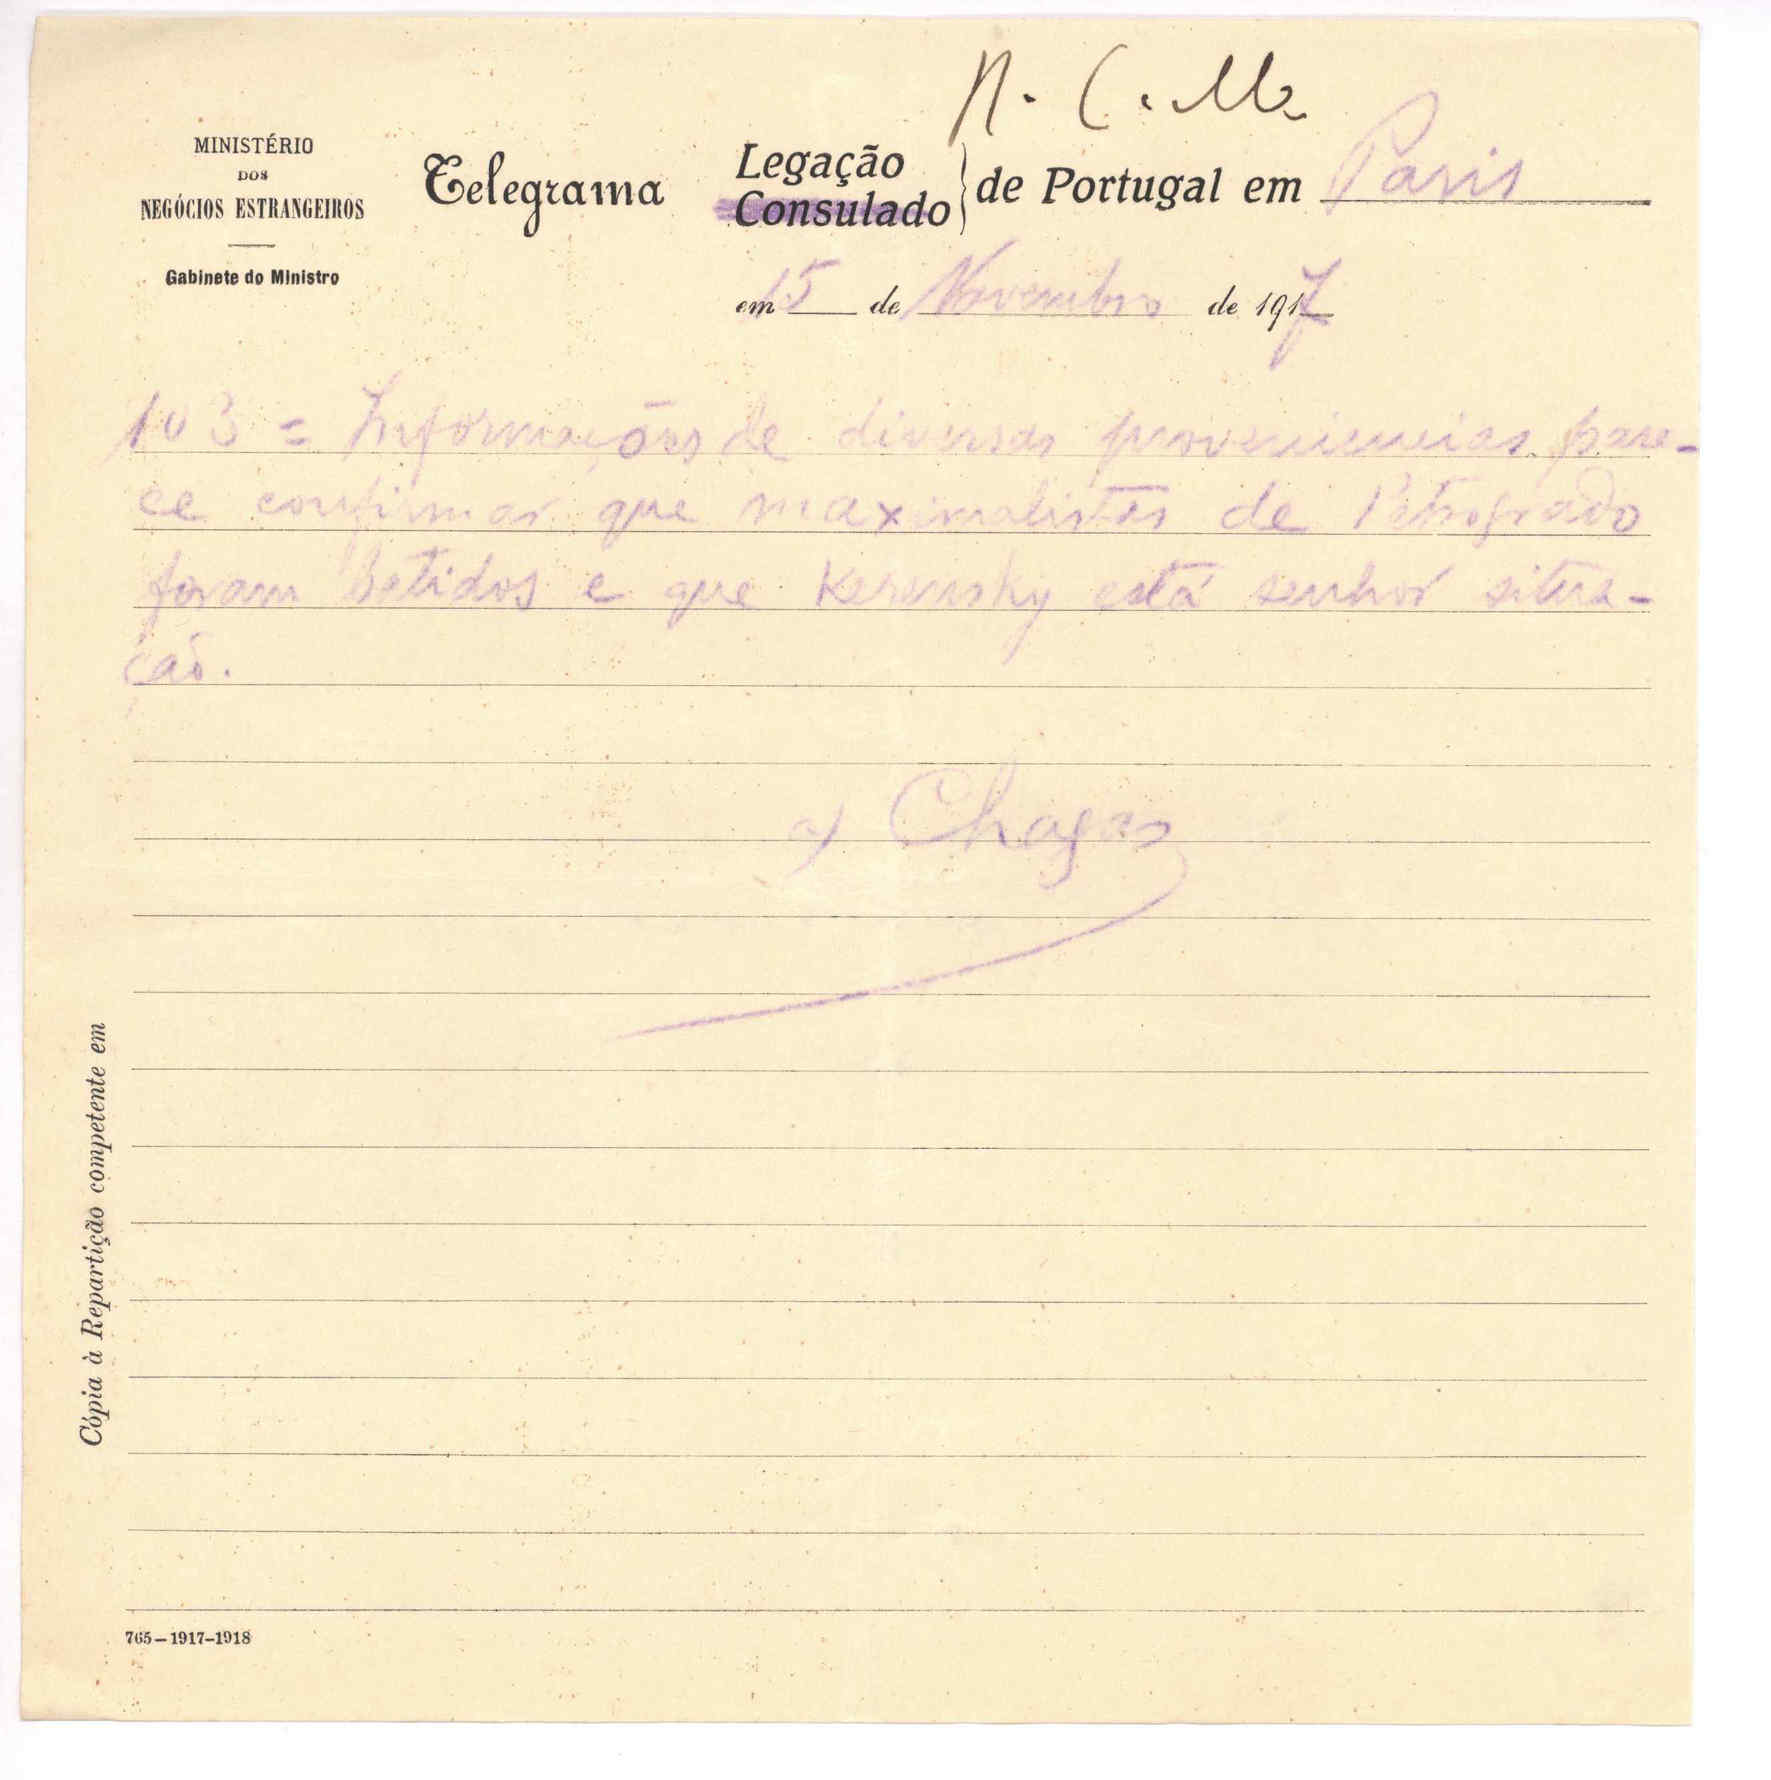 N. C. M.
MINISTÉRIO
DOS
NEGÓCIOS ESTRANGEIROS
Gabinete do Ministro
Telegrama
Legação
Consulado
de Portugal em Paris
em 15 de Novembro de 1917
103 = Informações de diversas proveniencias pare-
ce confirmar que maximalistas de Petrogrado
foram batidos e que Kerensky está senhor situa-
ção.
a) Chagas
Cópia à Repartição competente em
765-1917-1918